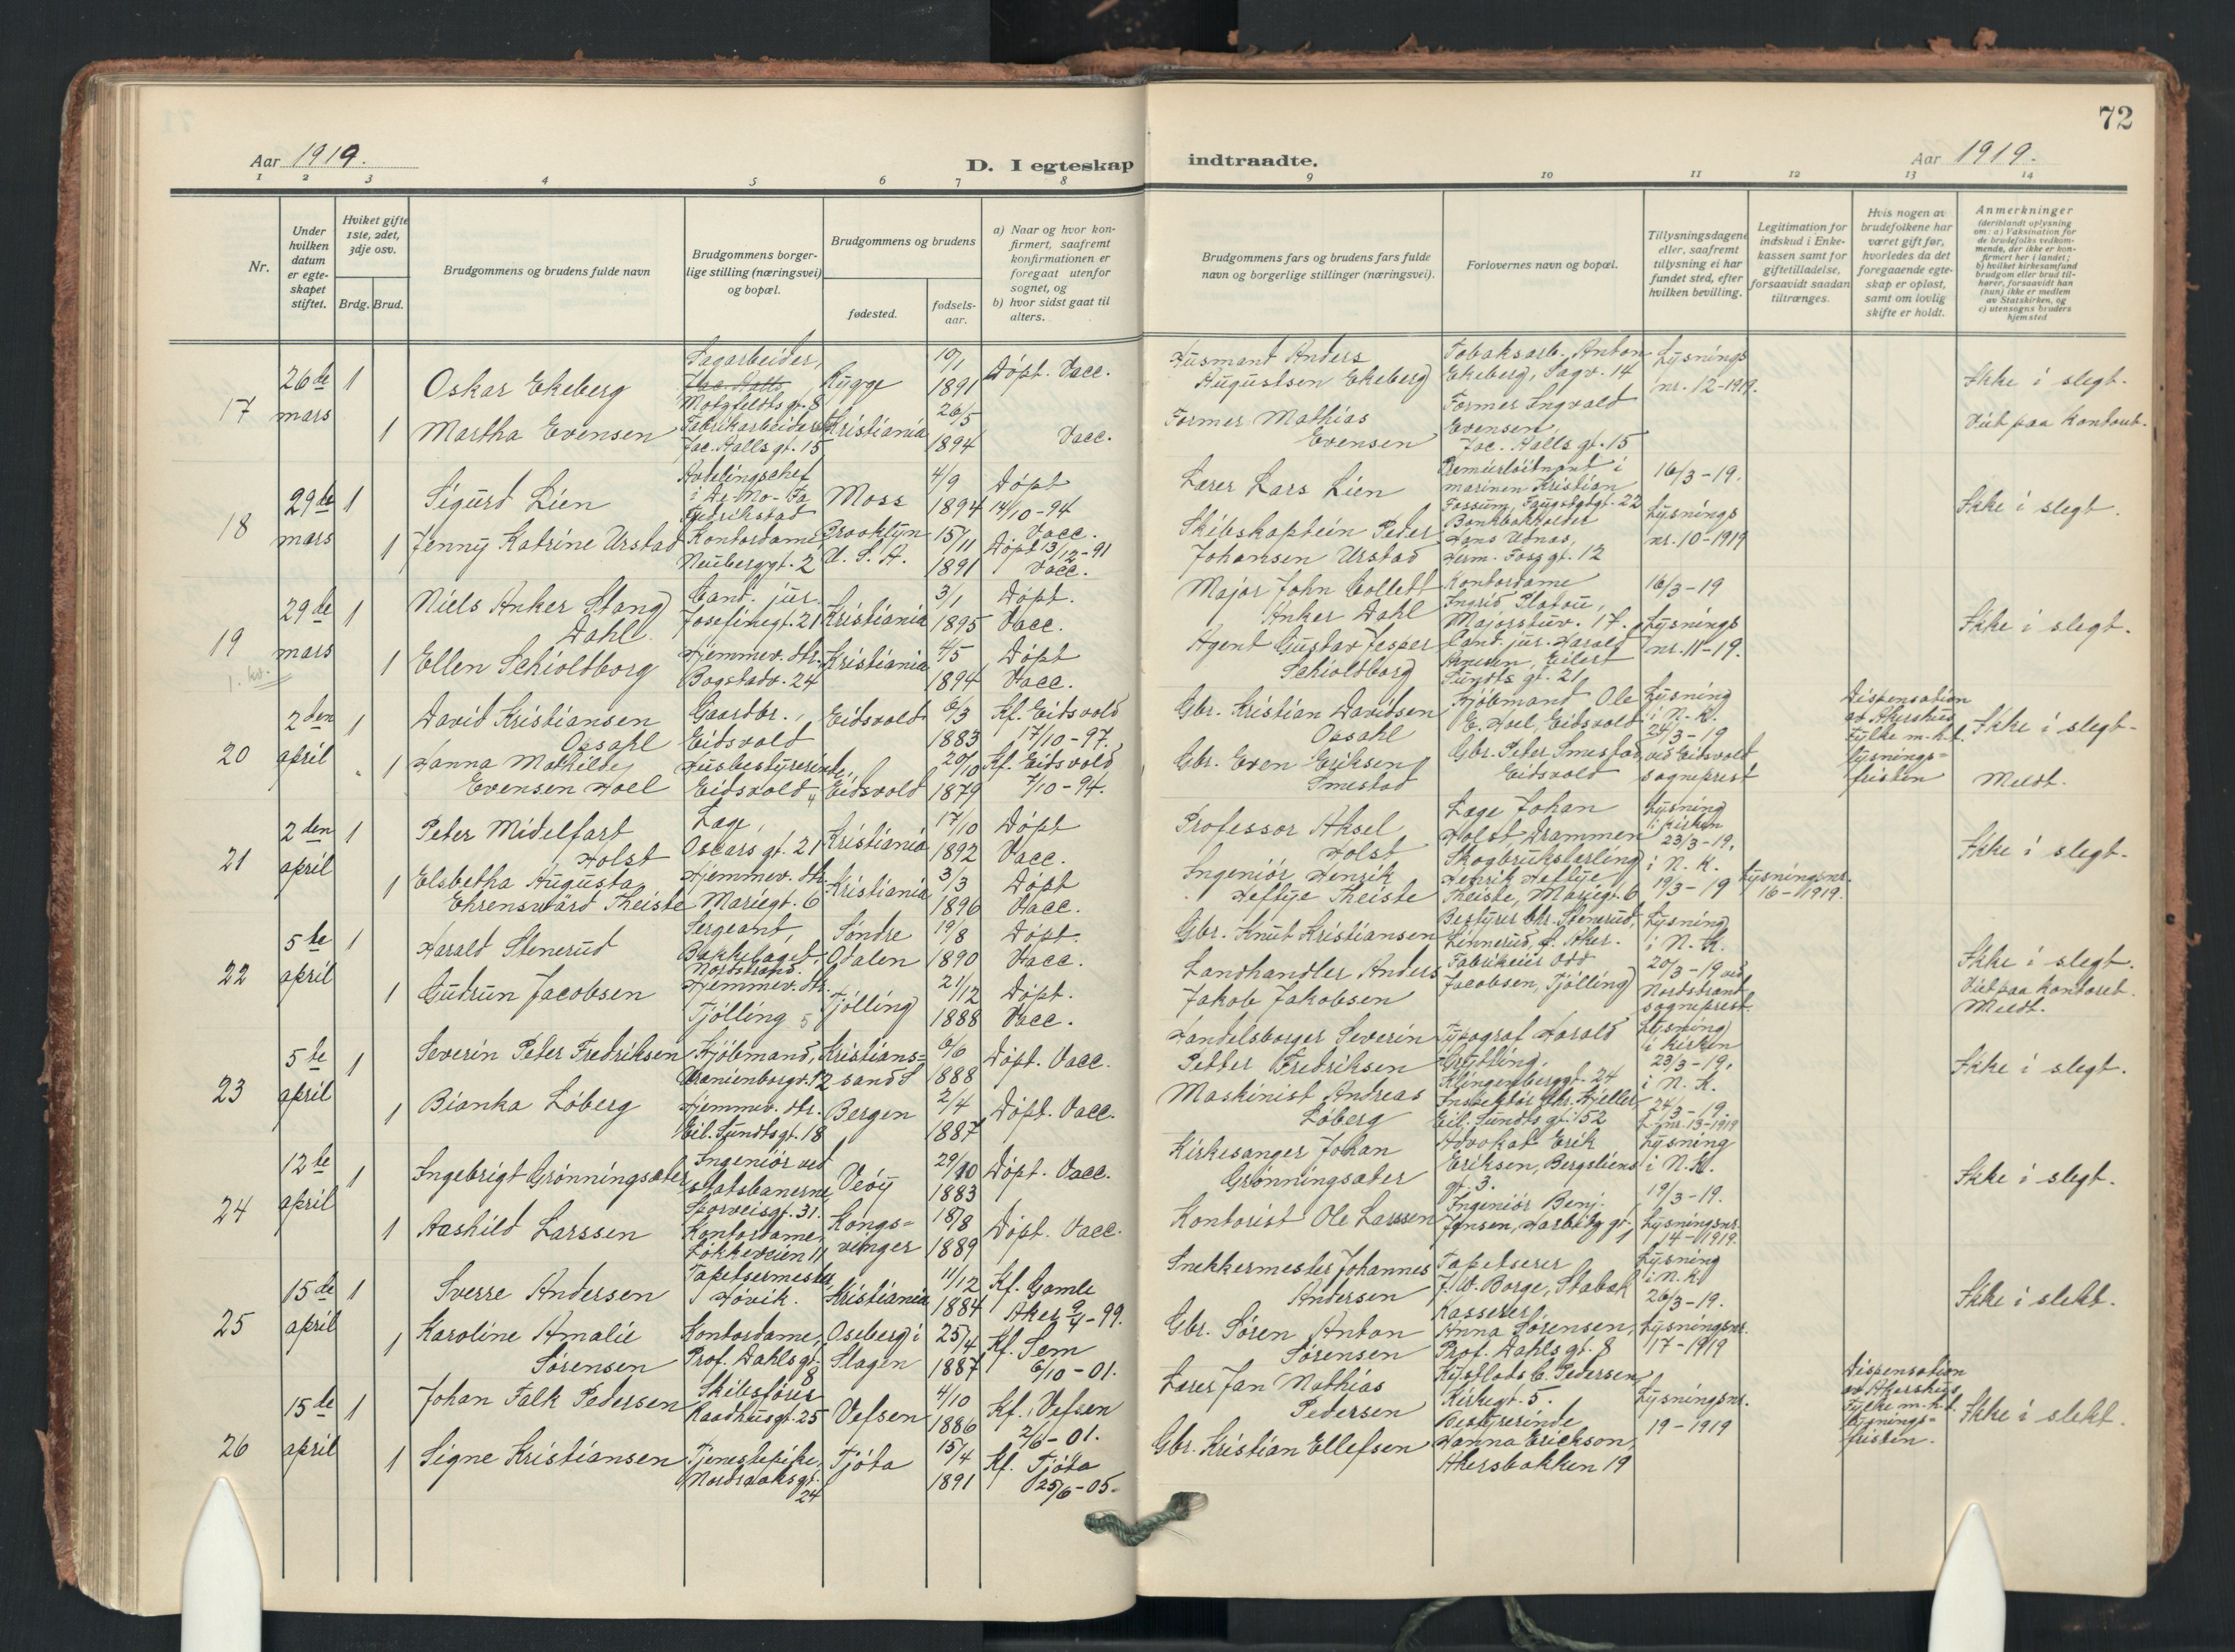 72
Aar 1919.
D. I egteskap indtraadte.
Aar 1919.
1 2 3 4 5 6 7 8 9 10 11 12 13 14
Nr.
Under hvilken datum er egteskapet stiftet.
Hviket gifte 1ste, 2det, 3dje osv.
Brdg. Brud.
Brudgommens og brudens fulde navn
Brudgommens borgerlige stilling (næringsvei) og bopæl.
Brudgommens og brudens
fødested.
fødselsaar.
a) Naar og hvor konfirmert, saafremt konfirmationen er foregaat utenfor sognet, og
b) hvor sidst gaat til alters.
Brudgommens fars og brudens fars fulde navn og borgerlige stillinger (næringsvei).
Forlovernes navn og bopæl.
Tillysningsdagene eller, saafremt tillysning ei har fundet sted, efter hvilken bevilling.
Legitimation for indskud i Enkekassen samt for giftetilladelse, forsaavidt saadan tiltrænges.
Hvis nogen av brudefolkene har været gift før, hvorledes da det foregaaende egteskap er opløst, samt om lovlig skifte er holdt.
Anmerkninger
(deriblandt oplysning om: a) Vaksination for de brudefolks vedkommende, der ikke er konfirmert her i landet;
b) hvilket kirkesamfund brudgom eller brud tilhører, forsaavidt han (hun) ikke er medlem av Statskirken, og
c) utensogns bruders hjemsted
17
26de mars
1
Oskar Ekeberg
Motzfeldts gt. 8
Rygge
10/1 1891
Døpt. Vacc.
Husmand Anders Augustsen Ekeberg
Tobaksarb. Anton Ekeberg, Sagv. 14
Lysnings nr. 12-1919.
Ikke i slegt.
1
Martha Evensen
Fabrikarbeider Jac. Halls gt. 15
Kristiania
26/5 1894
Vacc.
Former Mathias Evensen
Former Ingvald Evensen, Jac. Halls gt. 15
Viet paa kontoret.
18
29de mars
1
Sigurd Lien
Avdelingschef i De-No-Fa Fredrikstad
Moss
4/9 1894
Døpt 14/10-94 Vacc.
Lærer Lars Lien
Premierløitnant i marinen Kristian Fossum, Faugstadgt. 22
16/3-19.
Ikke i slegt.
1
Jenny Katrine Urstad
Kontordame, Neuberggt. 2
Brooklyn U.S.A.
15/11 1891
Døpt 13/12-91 Vacc.
Skibskaptein Peter Johansen Urstad
Bankbokholder Hans Udnæs, Herm. Foss gt. 12
Lysnings nr. 10-1919
19
29de mars
1
Niels Anker Stang Dahl.
Cand. jur. Josefinegt. 21
Kristiania
3/1 1895
Døpt. Vacc.
Major John Collett Anker Dahl
Kontordame Ingrid Platou, Majorstuv. 17.
16/3-19
Ikke i slegt.
1
Ellen Schioldborg
Hjemmev. dtr. Bogstadv. 24
Kristiania
4/5 1894
Døpt Vacc.
Agent Gustav Jesper Schioldborg
Cand. jur. Harald Arnesen, Eilert Sundts gt. 21
Lysnings nr. 11-19.
20
2den april
1
David Kristiansen Opsahl
Gaardbr., Eidsvold
Eidsvold
6/3 1883
Kf. Eidsvold 17/10-97.
Gbr. Kristian Davidsen Opsahl
Kjøbmand Ole E. Hoel, Eidsvold
Lysning i N. K. 24/3-19 ved Eidsvold sogneprest
Dispensation av Akershus Fylke m.h.t. lysningsfristen
Ikke i slegt.
1
Hanna Mathilde Evensen Hoel
Husbestyrerinde, Eidsvold
Eidsvold
20/10 1879
Kf. Eidsvold 7/10-94.
Gbr. Even Eriksen Smestad
Gbr. Peter Smestad, Eidsvold
Meldt.
21
2den april
1
Peter Midelfart Holst
Læge, Oscars gt. 21
Kristiania
17/10 1892
Døpt Vacc.
Professor Aksel Holst
Læge Johan Holst, Drammen
Lysning i kirken 23/3-19.
Ikke i slegt.
1
Elsbetha Augusta Ehrensvärd Theiste
Hjemmev. dtr. Mariegt. 6
Kristiania
3/3 1896
Døpt Vacc.
Ingeniør Henrik Heftye Theiste
Skogbrukslærling Henrik Heftye Theiste, Mariegt. 6
i N. K. 19/3-19
Lysningsnr. 16-1919.
22
5te april
1
Harald Stenerud
Sergeant, Bækkelaget, Nordstrand.
Søndre Odalen
19/8 1890
Døpt. Vacc.
Gbr. Knut Kristiansen
Bestyrer Chr. Stenerud, Linnerud, Ø. Aker.
Lysning i N. K. 20/3-19 ved Nordstrand sogneprest.
Ikke i slegt.
1
Gudrun Jacobsen
Hjemmev. dtr. Tjølling
Tjølling
21/12 1888
Døpt. Vacc.
Landhandler Anders Jakob Jakobsen
Fabrikeier Odd Jacobsen, Tjølling
Viet paa kontoret. Meldt.
23
5te april
1
Severin Peter Fredriksen
Kjøbmand, Uranienborgv. 12
Kristianssand S
6/6 1888
Døpt. Vacc.
Handelsborger Severin Petter Fredriksen
Typograf Harald Grytting, Klingenberggt. 24
Lysning i kirken 23/3-19.
Ikke i slegt.
1
Bianka Løberg
Hjemmev. dtr. Eil. Sundts gt. 18
Bergen
2/4 1887
Døpt. Vacc.
Maskinist Andreas Løberg
Inspektør Chr. Kjeller, Eil. Sundts gt. 52
i N. K. 24/3-19. L. nr. 13-1919
24
12te april
1
Ingebrigt Grønningsæter
Ingeniør ved statsbanerne, Sporveisgt. 31.
Veøy
29/10 1883
Døpt. Vacc.
Kirkesanger Johan Grønningsæter
Advokat Erik Eriksen, Bergsliens gt. 3.
Lysning i N. K. 19/3-19.
Ikke i slegt.
1
Aashild Larssen
Kontordame, Løkkeveien 11
Kongsvinger
18/8 1889
Døpt. Vacc.
Kontorist Ole Larssen
Ingeniør Benj. Jensen, Harbitz gt. 1
Lysningsnr. 14-1919.
25
15de april
1
Sverre Andersen
Tapetsermester Høvik.
Kristiania
11/12 1884
Kf. Gamle Aker 9/4-99.
Snekkermester Johannes Andersen
Tapetserer J. W. Borge, Stabæk
Lysning i N. K. 26/3-19.
Ikke i slekt.
1
Karoline Amalie Sørensen
Kontordame, Prof. Dahls gt. 8
Oseberg i Slagen
25/4 1887
Kf. Sem 6/10-01.
Gbr. Søren Anton Sørensen
Kasserer Anna Sørensen, Prof. Dahls gt. 8
Lysningsnr. 17-1919
26
15de april
1
Johan Falk Pedersen
Skibsfører Raadhusgt. 25
Vefsen
4/10 1886
Kf. Vefsen 2/6-01.
Lærer Jan Mathias Pedersen
C. Pedersen, Kirkegt. 5.
Lysningsnr. 19-1919
Dispensation av Akershus Fylke m.h.t. lysningsfristen.
Ikke i slekt.
1
Signe Kristiansen
Tjenestepike, Nordraaksgt. 24
Tjøta
15/4 1891
Kf. Tjøta 25/6-05.
Gbr. Kristian Ellefsen
Bestyrerinde Hanna Erickson, Akersbakken 19